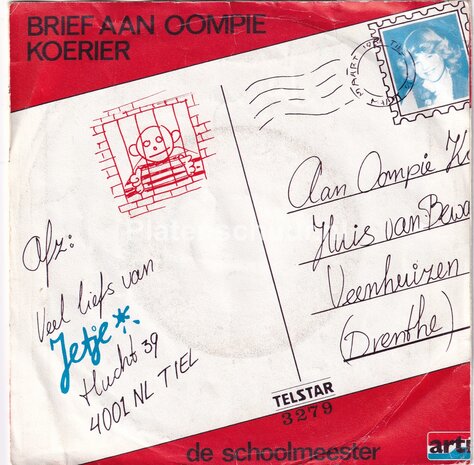 BRIEF AAN OOMPIE
KOERIER
MAART
Aan Oompie K
Huis van Bewa
Veenhuizen
(Drenthe)
Afz:
Veel liefs van
Jetje
Hucht 39
4001 NL TIEL
TELSTAR
3279
de schoolmeester